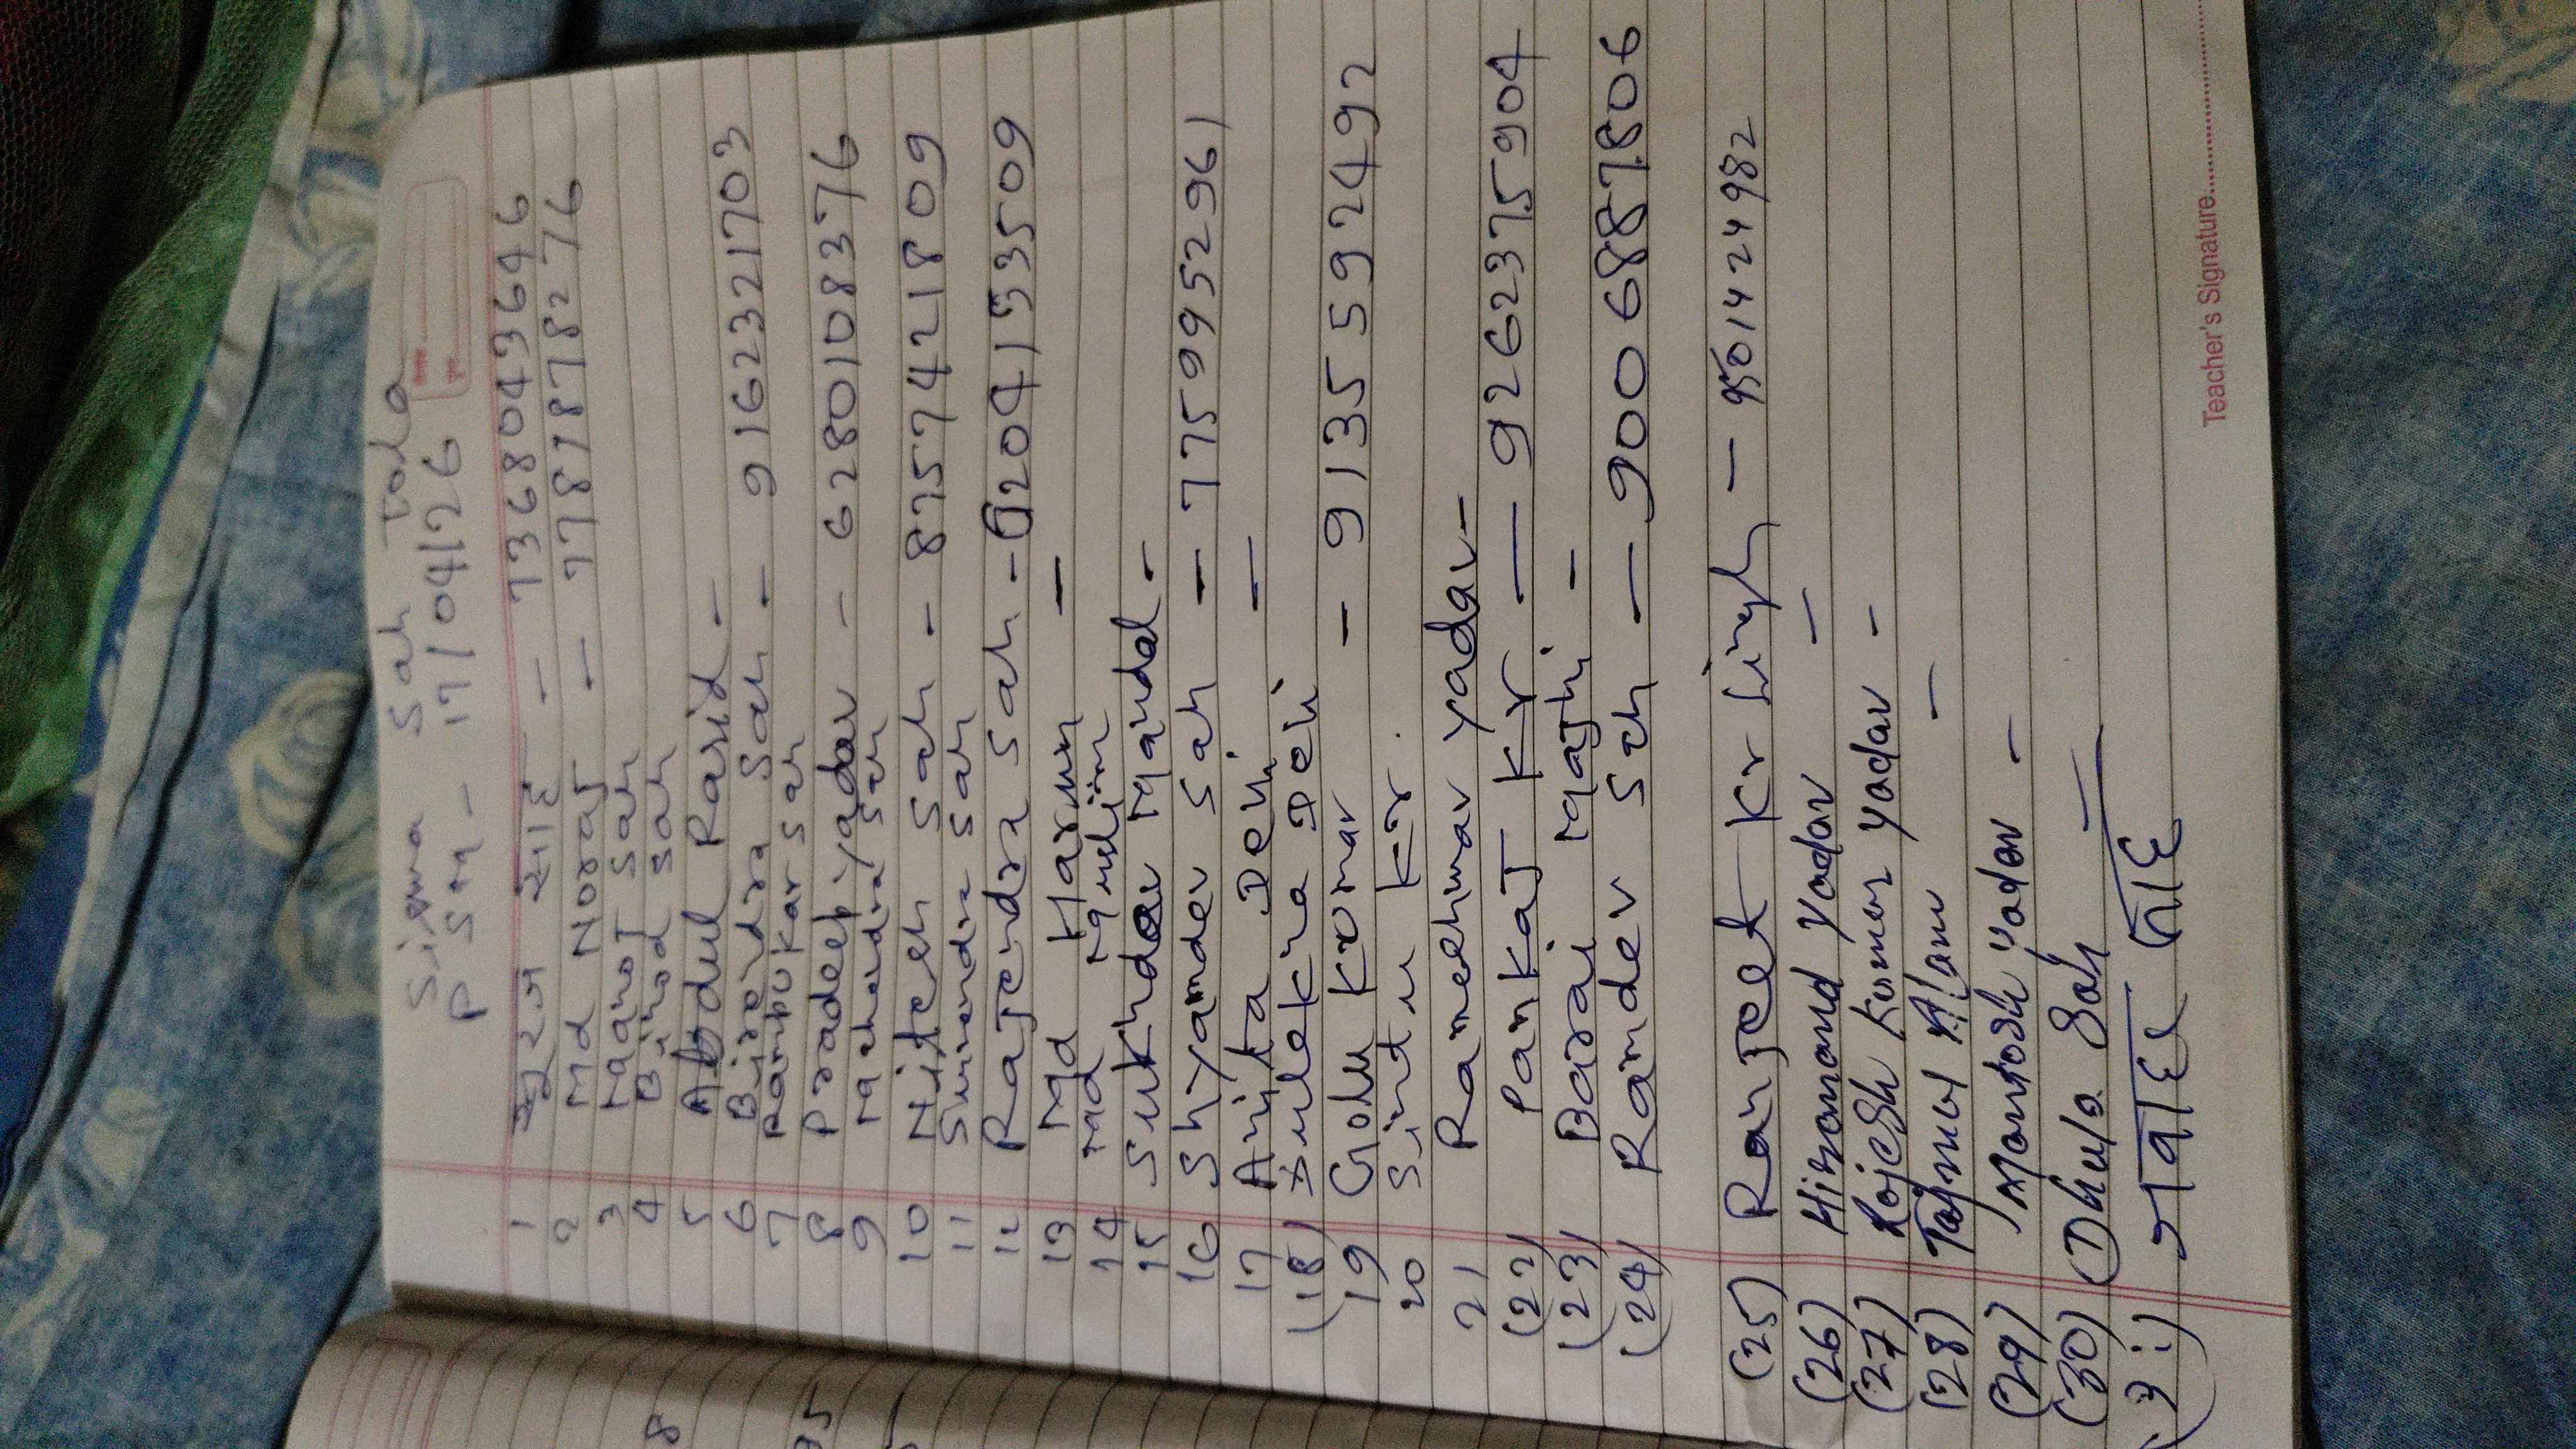 Sisma Sah Tola
P Sra - 17/04/26
1 सूरज साह - 7368043646
2 Md Noraj - 7781878276
3 Manoj Sah
4 Binod Sah
5 Abdul Rasid -
6 Birendra Sah - 9162321703
7 Rampukar Sah
8 Pradeep yadav - 6280108376
9 Ramchandra Sah
10 Nitesh Sah - 8757421809
11 Surendra Sah
12 Rajendra Sah - 9204153509
13 Md Harun -
14 Md Muslim
15 Sukhdev Mandal -
16 Shyamdev Sah - 7759952961
17 Anita Devi -
(18) Zulekha Devi
19 Golu Kumar - 9135592492
20 Sintu Kr.
21 Rameshwar yadav -
(22) Pankaj Kr - 9262375904
(23) Barai Majhi -
(24) Ramdev Sah - 9006887806
(25) Ranjeet Kr Singh - 9501424982
(26) Hiranand Yadav -
(27) Rajesh Kumar yadav -
(28) Tajmul Alam -
(29) Mantosh Yadav -
(30) Dhula Sah -
(31)
Teacher's Signature